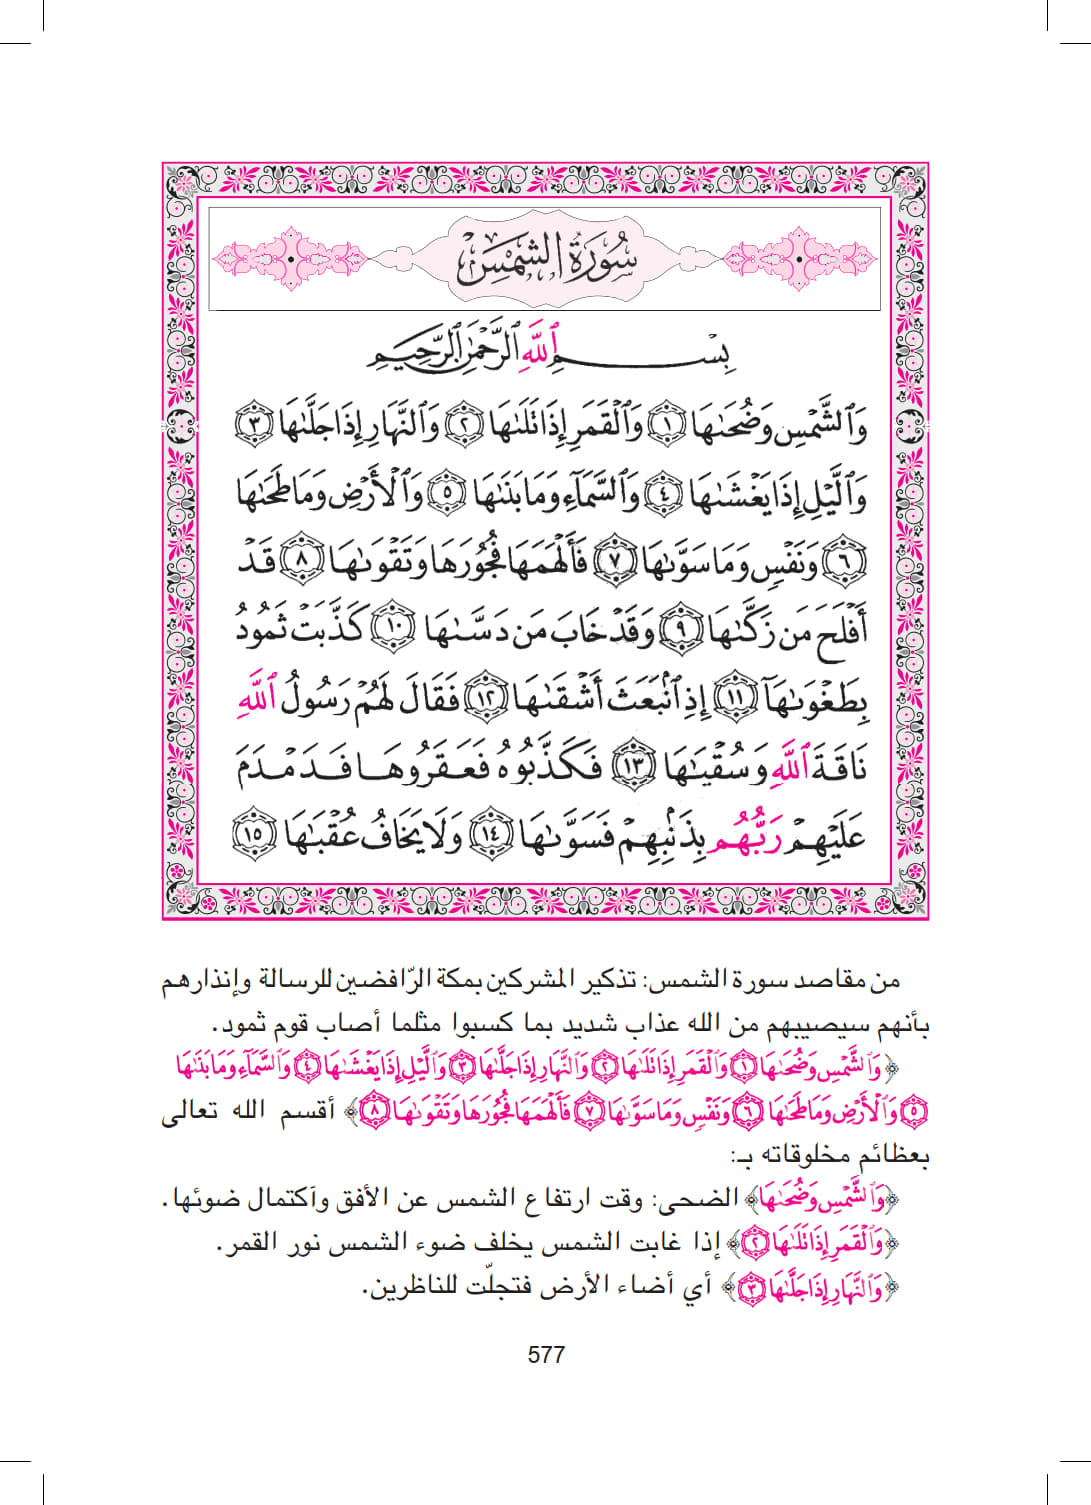 سُورَةُ الشَّمْسِ
بِسْمِ ٱللَّهِ ٱلرَّحْمَٰنِ ٱلرَّحِيمِ
وَٱلشَّمْسِ وَضُحَىٰهَا ١ وَٱلْقَمَرِ إِذَا تَلَىٰهَا ٢ وَٱلنَّهَارِ إِذَا جَلَّىٰهَا ٣
وَٱلَّيْلِ إِذَا يَغْشَىٰهَا ٤ وَٱلسَّمَآءِ وَمَا بَنَىٰهَا ٥ وَٱلْأَرْضِ وَمَا طَحَىٰهَا
٦ وَنَفْسٍ وَمَا سَوَّىٰهَا ٧ فَأَلْهَمَهَا فُجُورَهَا وَتَقْوَىٰهَا ٨ قَدْ
أَفْلَحَ مَن زَكَّىٰهَا ٩ وَقَدْ خَابَ مَن دَسَّىٰهَا ١٠ كَذَّبَتْ ثَمُودُ
بِطَغْوَىٰهَآ ١١ إِذِ ٱنۢبَعَثَ أَشْقَىٰهَا ١٢ فَقَالَ لَهُمْ رَسُولُ ٱللَّهِ
نَاقَةَ ٱللَّهِ وَسُقْيَٰهَا ١٣ فَكَذَّبُوهُ فَعَقَرُوهَا فَدَمْدَمَ
عَلَيْهِمْ رَبُّهُم بِذَنۢبِهِمْ فَسَوَّىٰهَا ١٤ وَلَا يَخَافُ عُقْبَٰهَا ١٥
من مقاصد سورة الشمس: تذكير المشركين بمكة الرّافضين للرسالة وإنذارهم
بأنهم سيصيبهم من الله عذاب شديد بما كسبوا مثلما أصاب قوم ثمود.
﴿وَٱلشَّمْسِ وَضُحَىٰهَا ١ وَٱلْقَمَرِ إِذَا تَلَىٰهَا ٢ وَٱلنَّهَارِ إِذَا جَلَّىٰهَا ٣ وَٱلَّيْلِ إِذَا يَغْشَىٰهَا ٤ وَٱلسَّمَآءِ وَمَا بَنَىٰهَا
٥ وَٱلْأَرْضِ وَمَا طَحَىٰهَا ٦ وَنَفْسٍ وَمَا سَوَّىٰهَا ٧ فَأَلْهَمَهَا فُجُورَهَا وَتَقْوَىٰهَا ٨﴾ أقسم الله تعالى
بعظائم مخلوقاته بـ:
﴿وَٱلشَّمْسِ وَضُحَىٰهَا﴾ الضحى: وقت ارتفاع الشمس عن الأفق واكتمال ضوئها.
﴿وَٱلْقَمَرِ إِذَا تَلَىٰهَا ٢﴾ إذا غابت الشمس يخلف ضوء الشمس نور القمر.
﴿وَٱلنَّهَارِ إِذَا جَلَّىٰهَا ٣﴾ أي أضاء الأرض فتجلّت للناظرين.
577